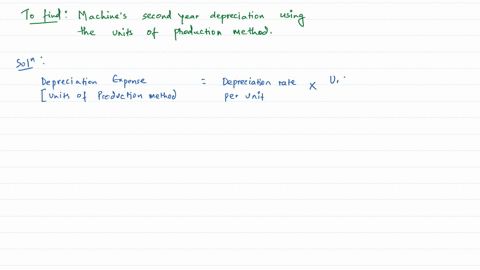 To find: Machine's second year depreciation using
the units of production method.
Solⁿ:
Depreciation Expense = Depreciation rate × U
[units of Production method per unit